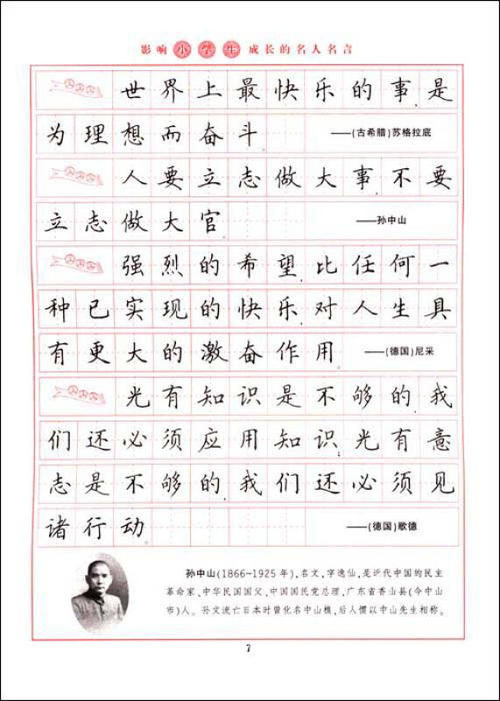 影响小学生成长的名人名言
世界上最快乐的事是
为理想而奋斗 ——(古希腊)苏格拉底
人要立志做大事,不要
立志做大官 ——孙中山
强烈的希望,比任何一
种已实现的快乐,对人生具
有更大的激奋作用 ——(德国)尼采
光有知识是不够的,我
们还必须应用知识,光有意
志是不够的,我们还必须见
诸行动 ——(德国)歌德
孙中山(1866~1925年),名文,字逸仙,是近代中国的民主
革命家,中华民国国父,中国国民党总理,广东省香山县(今中山
市)人。孙文流亡日本时曾化名中山樵,后人惯以中山先生相称。
7